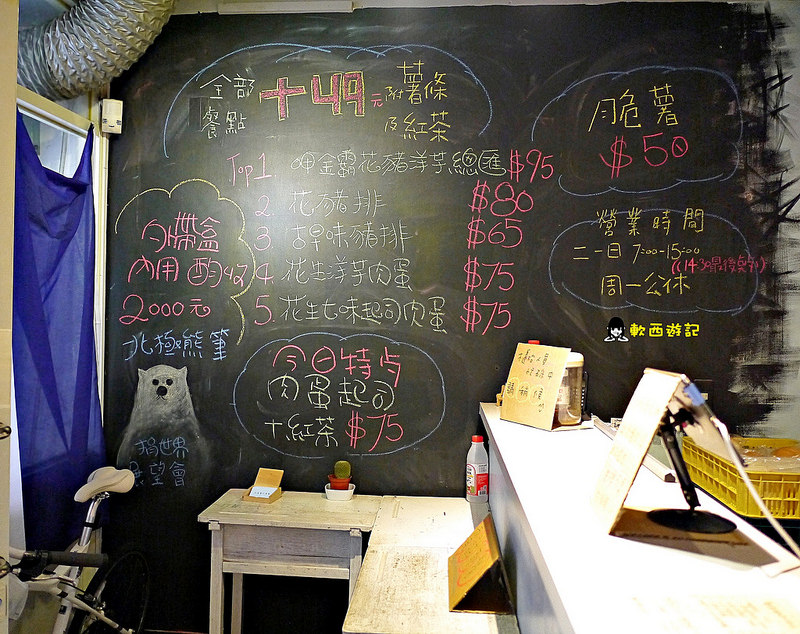 全部
餐點
+49元
附薯條
及紅茶
Top1 呷金霸花豬洋芋總匯 $95
2. 花豬排 $80
3. 古早味豬排 $65
4. 花生洋芋肉蛋 $75
5. 花生七味起司肉蛋 $75
月脆薯
$50
營業時間
二一日 7:00-15:00
((14:30最後點餐))
周一公休
軟西遊記
自帶盒
內用 酌收
2000元
北極熊筆
捐世界
展望會
今日特点
肉蛋起司
+紅茶 $75